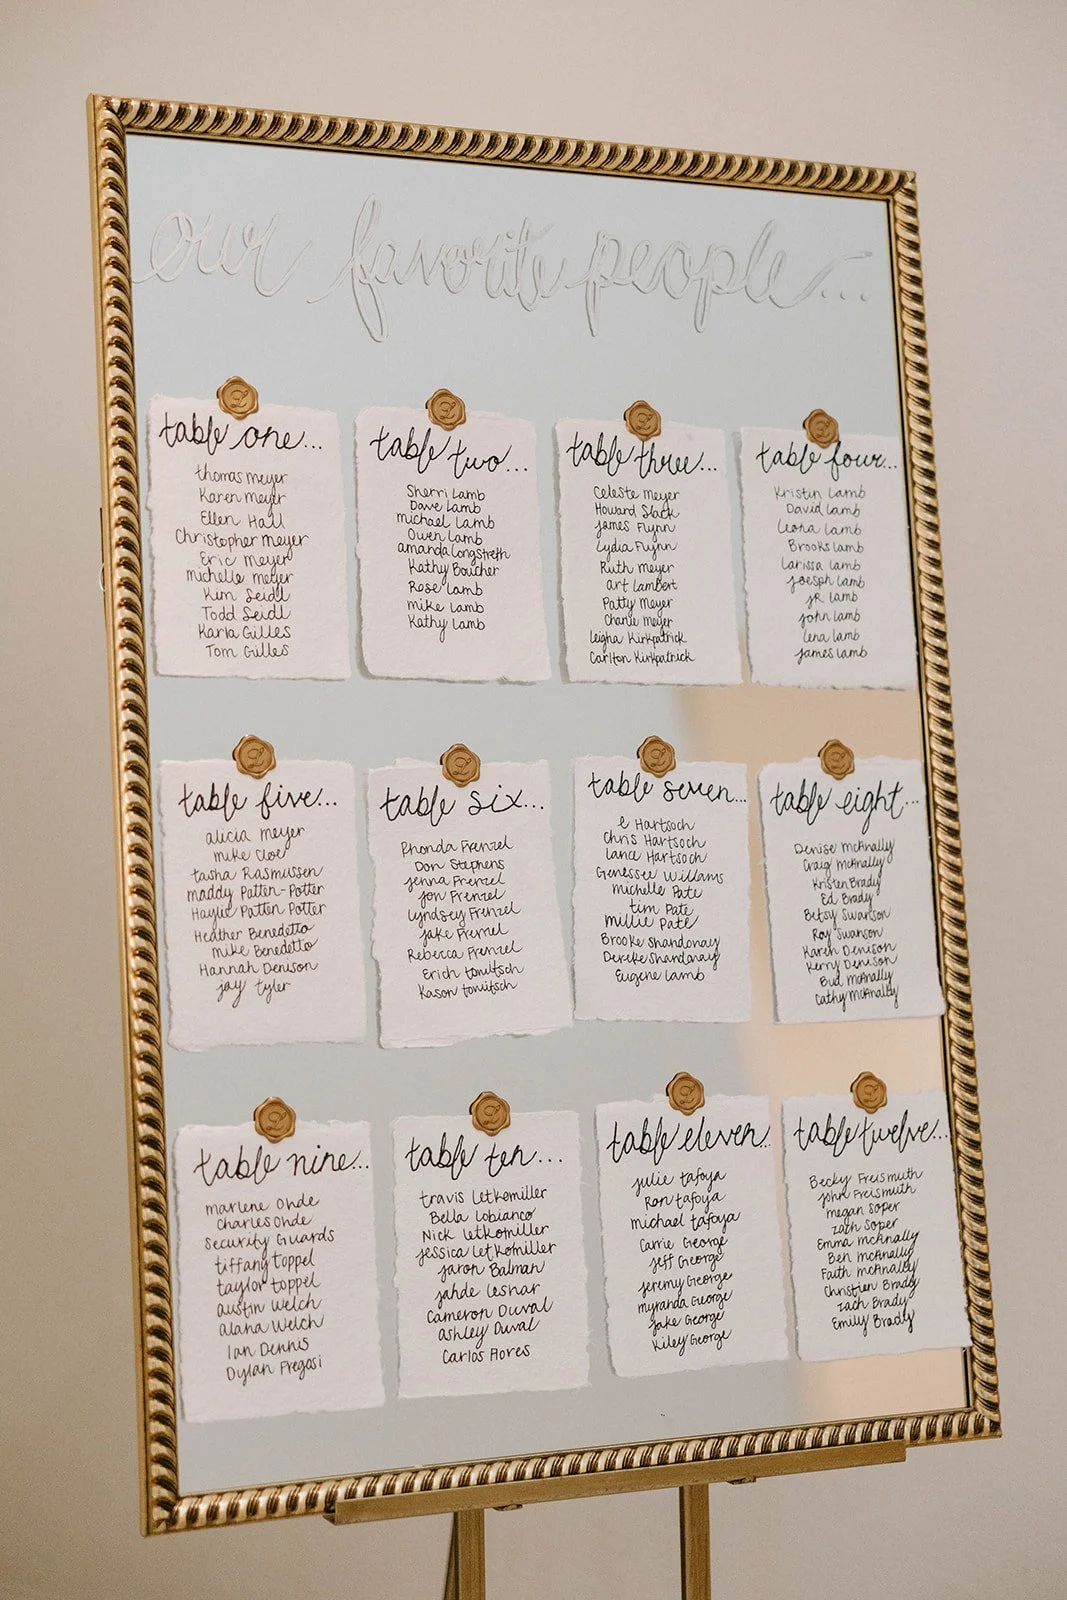 our favorite people...
table one...
thomas meyer
Karen meyer
Ellen Hall
Christopher meyer
Eric meyer
michelle meyer
Kim Seidl
Todd Seidl
Karla Gilles
Tom Gilles
table two...
Sherri Lamb
Dave Lamb
michael Lamb
Owen Lamb
amanda Longstreth
Kathy Boucher
Rose Lamb
mike Lamb
Kathy Lamb
table three...
Celeste Meyer
Howard Slack
James Flynn
Lydia Flynn
Ruth meyer
art Lambert
Patty Meyer
Charlie meyer
Leigha Kirkpatrick
Carlton Kirkpatrick
table four...
Kristin Lamb
David Lamb
Leona Lamb
Brooks Lamb
Larissa Lamb
Joesph Lamb
JR Lamb
John Lamb
Lena Lamb
James Lamb
table five...
alicia meyer
mike Cloe
tasha Rasmussen
maddy Patten-Potter
Haylie Patten Potter
Heather Benedetto
mike Benedetto
Hannah Denison
jay tyler
table six...
Rhonda Frenzel
Don Stephens
Jenna Frenzel
Jon Frenzel
Lyndsey Frenzel
Jake Frenzel
Rebecca Frenzel
Erich tomitsch
Kason tomitsch
table seven...
E Hartsoch
Chris Hartsoch
Lance Hartsoch
Genessee Williams
michelle Pate
tim Pate
millie Pate
Brooke Shandonay
Dereke Shandonay
Eugene Lamb
table eight...
Denise mcAnally
Craig mcAnally
Kristen Brady
Ed Brady
Betsy Swanson
Roy Swanson
Karen Denison
Kerry Denison
Bud mcAnally
Cathy mcAnally
table nine...
marlene Ohde
Charles Ohde
Security Guards
tiffany toppel
taylor toppel
austin Welch
alana Welch
Ian Dennis
Dylan Fregosi
table ten...
travis Letkomiller
Bella Lobianco
Nick Letkomiller
Jessica Letkomiller
Jaron Balman
Jahde Lesnar
Cameron Duval
ashley Duval
Carlos Flores
table eleven...
Julie tafoya
Ron tafoya
michael tafoya
Carrie George
Jeff George
Jeremy George
myranda George
Jake George
Kiley George
table twelve...
Becky Freismuth
John Freismuth
megan Soper
zach Soper
Emma mcAnally
Ben mcAnally
Faith mcAnally
Christien Brady
zach Brady
Emily Brady